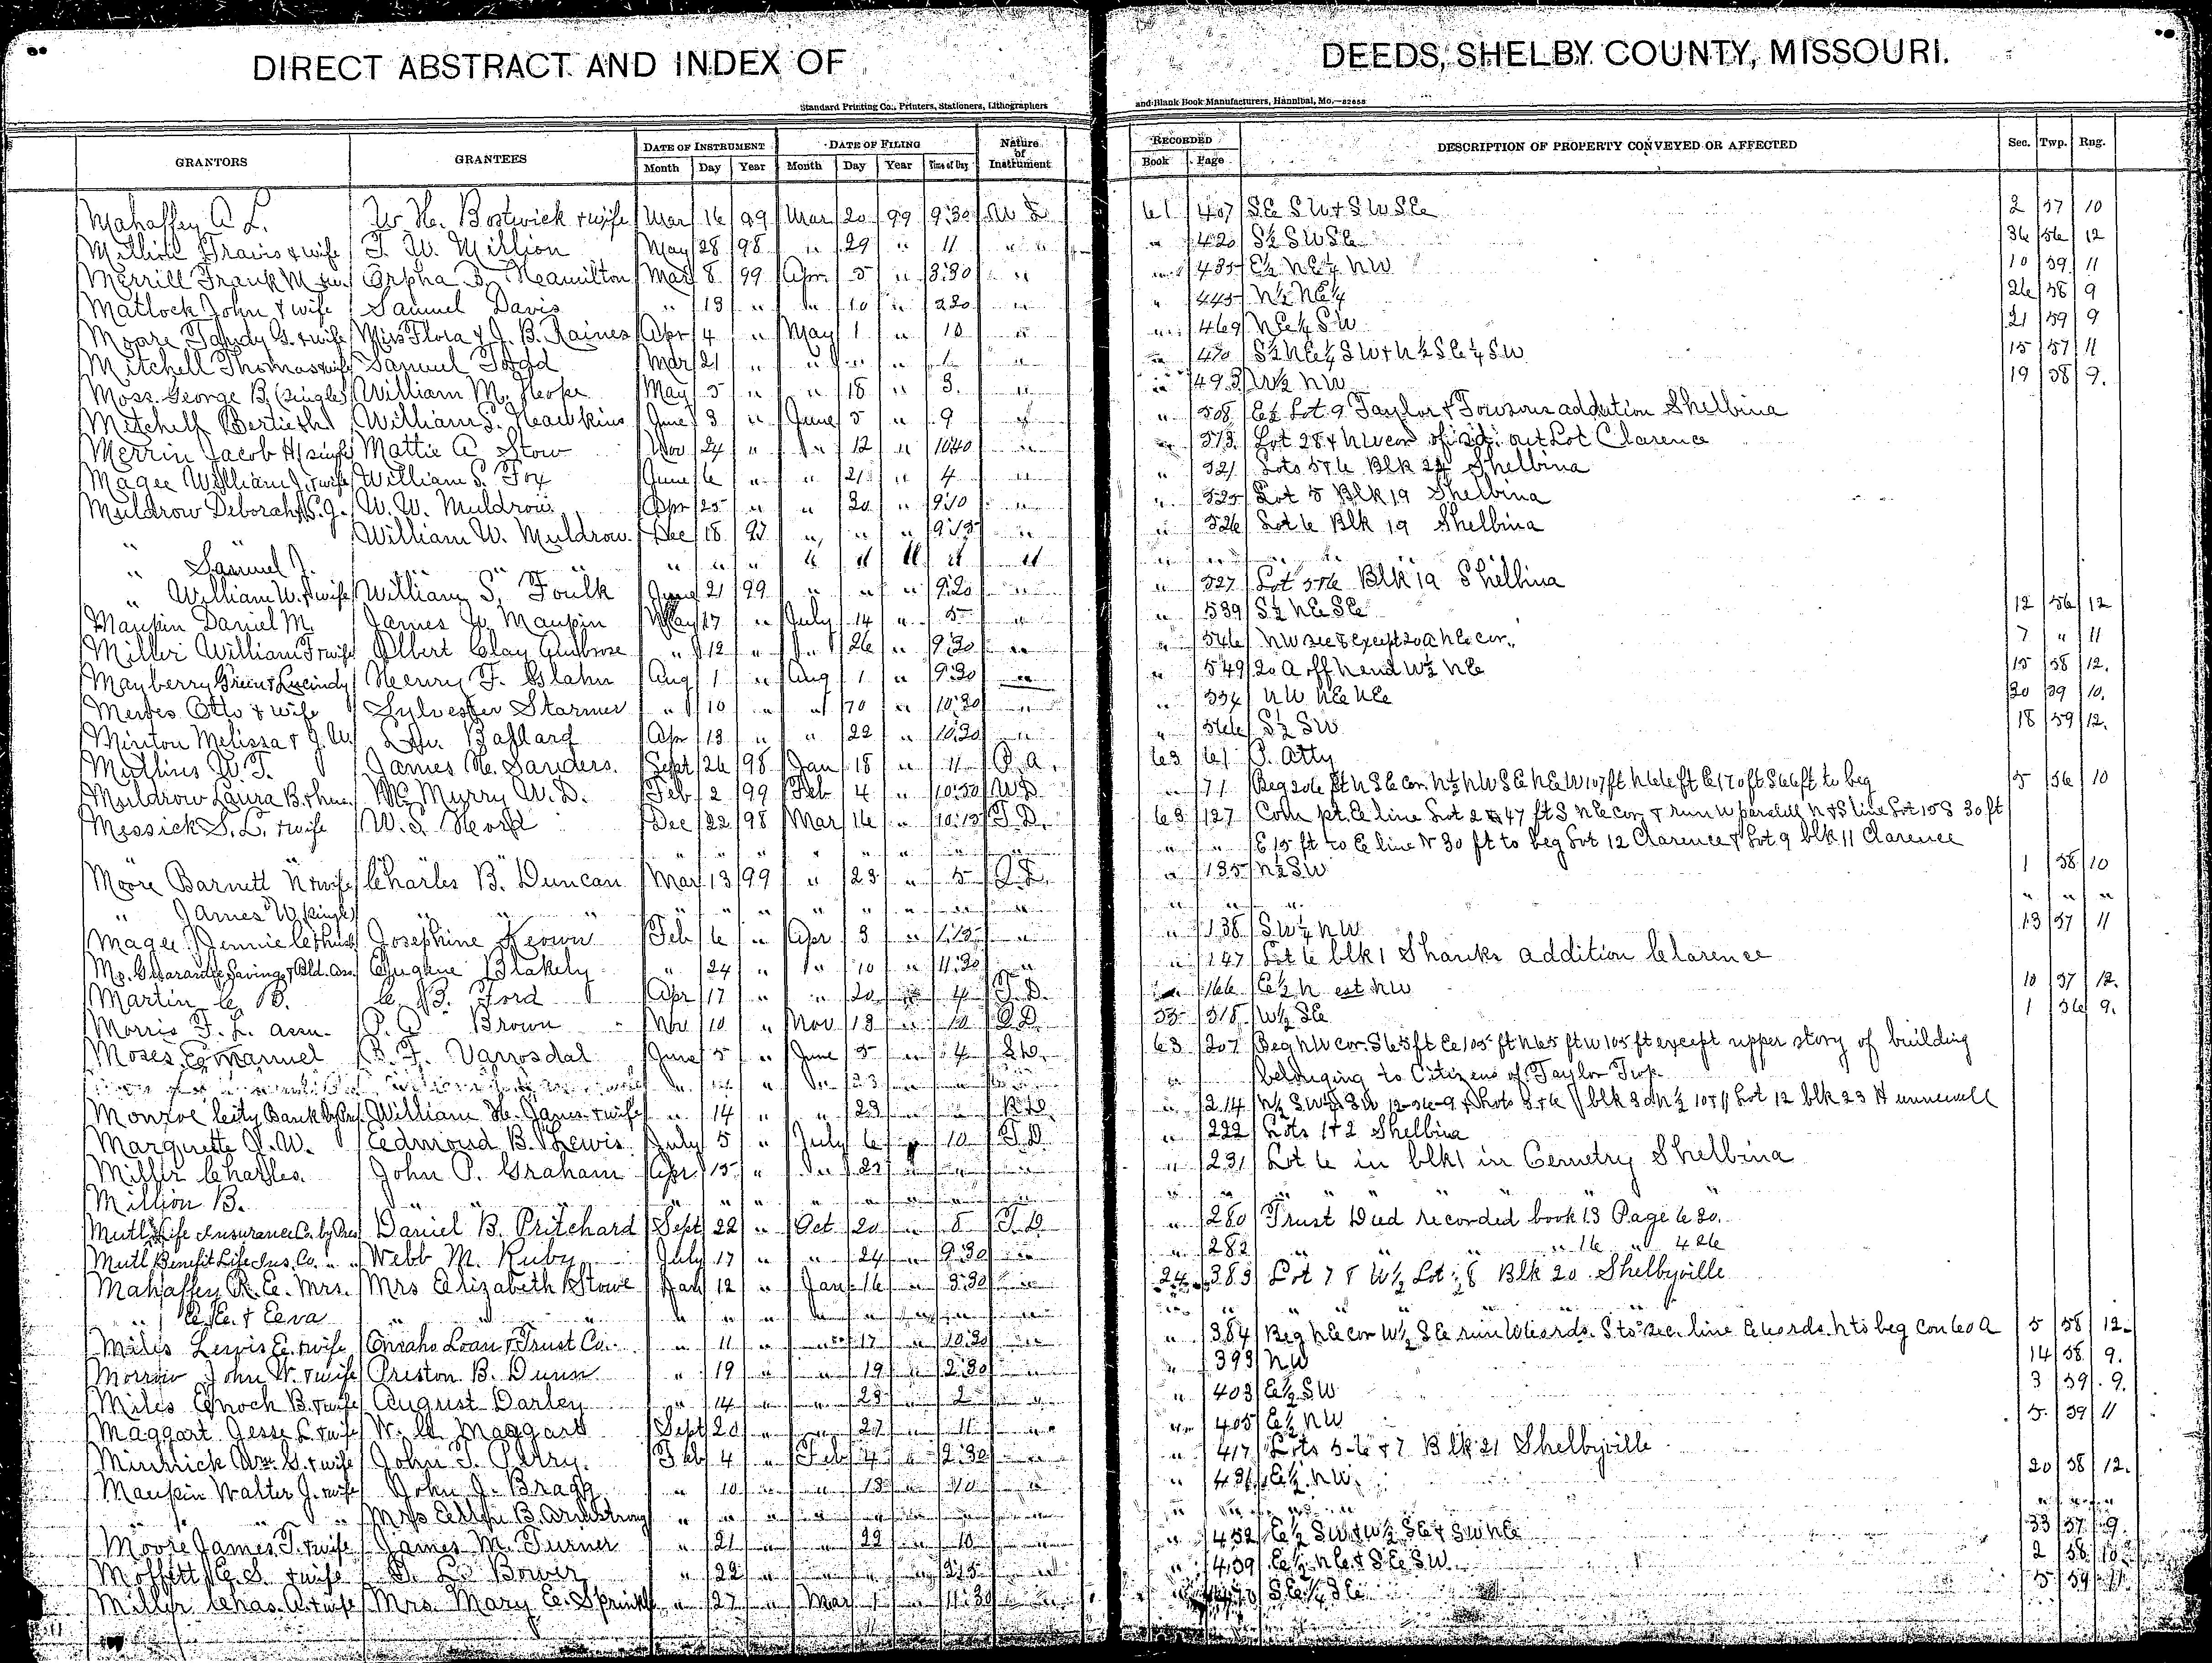 DIRECT ABSTRACT AND INDEX OF DEEDS, SHELBY COUNTY, MISSOURI.
Standard Printing Co., Printers, Stationers, Lithographers and Blank Book Manufacturers, Hannibal, Mo.
GRANTORS GRANTEES DATE OF INSTRUMENT DATE OF FILING Nature of Instrument RECORDED DESCRIPTION OF PROPERTY CONVEYED OR AFFECTED Sec. Twp. Rng.
Month Day Year Month Day Year Time of Day Book Page
Mahaffey A L. W H. Bostwick & wife Mar 16 99 Mar 20 99 9:30 W D 61 407 SE SW & SW SE 2 57 10
Million Travis & wife T. W. Million May 28 98 " 29 " 11 " " 420 S½ SW SE 36 56 12
Merrill Frank M Orpha B. Hamilton Mar 8 99 Apr 5 " 3:30 " " 435 E½ NE¼ NW 10 59 11
Matlock John & wife Samuel Davis " 13 " " 10 " 2 30 " " 445 N½ NE¼ 26 58 9
Moore Tandy G. & wife Miss Flora & J. B. Raines Apr 4 " May 1 " 10 " " 469 NE¼ SW 21 59 9
Mitchell Thomas & wife Samuel Todd Mar 21 " " " " 1 " " 470 S½ NE¼ SW & N½ SE¼ SW 15 57 11
Moss George B. (single) William M. Hope May 5 " " 18 " 3. " " 493 W½ NW 19 58 9.
Mitchell Bertie William S. Hawkins June 3 " June 5 " 9 " " 508 Lot 9 Taylor & Towsons addition Shelbina
Merrin Jacob H single Mattie A Stow Nov 24 " " 12 " 10 40 " " 513 Lot 28 & NW cor of out Lot Clarence
Magee William J. & wife William S. Fox June 6 " " 21 " 4 " " 521 Lots 5 & 6 Blk 24 Shelbina
Muldrow Deborah S. G. W. W. Muldrow Apr 25 " " 30 " 9 10 " " 525 Lot 5 Blk 19 Shelbina
" " William W. Muldrow Dec 18 97 " " " 9 15 " " 526 Lot 6 Blk 19 Shelbina
" Samuel J. " " " " " " " " " " " " "
" William W. & wife William S. Foulk June 21 99 " " " 9:20 " " 527 Lot 5 & 6 Blk 19 Shelbina
Maupin Daniel M. James W. Maupin May 17 " July 14 " 5 " " 539 S½ NE SE 12 56 12
Miller William F & wife Albert Clay Ambrose " 12 " " 26 " 9:30 " " 546 NW except 20 A NE cor. 7 " 11
Mayberry Green & Lucindy Henry F. Blahn Aug 1 " Aug 1 " 9:30 " " 549 20 A off N end W½ NE 15 58 12.
Mewes Otto & wife Sylvester Starmer " 10 " " 10 " 10:30 " " 554 NW NE NE 30 59 10.
Minton Melissa & J. W. Ballard Apr 13 " " 22 " 10:30 " " 566 S½ SW 18 59 12.
Mullins W. T. James H. Sanders. Sept 26 98 Jan 18 " 11 P. A. 63 61 P. Atty
Muldrow Laura B. & hus. Mc Murry W. D. Feb 2 99 Feb 4 " 10:50 W D " 71 Beg 206 ft N SE cor. N½ NW SE NE W 107 ft N 66 ft E 170 ft S 66 ft to beg 5 56 10
Messick S. L. & wife W. S. Hord Dec 22 98 Mar 16 " 10:15 T. D. 63 127 Com pt. E line Lot 2 47 ft S NE cor & run W parallel N & S line Lot 10 S 30 ft
" " " " " " " " " " E 15 ft to E line N 30 ft to beg Lot 12 Clarence & Lot 9 blk 11 Clarence
Moore Barnett N & wife Charles B. Duncan Mar 13 99 " 23 " 5 Q. D. " 135 N½ SW 1 58 10
" James W. single " " " " " " " " " " " " " "
Magee Jennie C & husb Josephine Keown Feb 6 " Apr 3 " 1:15 " " 138 SW¼ NW 13 57 11
Mo. Guarantee Savings & Bld. Ass. Eugene Blakely " 24 " " 10 " 11:30 " " 147 Lot 6 blk 1 Shanks addition Clarence
Martin C. B. C. B. Ford Apr 17 " " 20 " 4 T. D. " 166 E½ N est NW 10 57 12.
Morris F. L. P. A Brown Nov 10 " Nov 13 " 10 Q D. 55 318 W½ SE 1 56 9.
Moses Emanuel B. F. Vanosdal June 5 " June 5 " 4 " 63 207 Beg NW cor. S 65 ft E 105 ft N 65 ft W 105 ft except upper story of building
belonging to Citizens of Taylor Twp.
Monroe City Bank by Pres. William H. Janes & wife " 14 " " 23 " " " 214 N½ SW¼ SW 12-56-9 & Lots 5 & 6 blk 3 & N½ Lot 12 blk 23 Hunnewell
Marquette J. W. Edmond B. Thewis July 5 " July 6 " 10 T D " 222 Lots 1 & 2 Shelbina
Miller Charles. John P. Graham Apr 15 " " 27 " " " " 231 Lot 6 in blk 1 in Cemetry Shelbina
Million B. " " " " " " " " " " " " "
Mutl Life Insurance Co. by Pres Daniel B. Pritchard Sept 22 " Oct 20 " 8 T. D " 280 Trust Deed recorded book 13 Page 630.
Mutl Benefit Life Ins. Co. " " Webb M. Ruby July 17 " " 24 " 9:30 " " 282 " " " " 16 " 426
Mahaffey R. E. Mrs. Mrs Elizabeth Stowe Jan 12 " Jan 16 " 3:30 " 24 383 Lot 7 & W½ Lot 8 Blk 20. Shelbyville
" E. E. & Eeva " " " " " " " " " " " "
Miles Lewis E. & wife Omaha Loan & Trust Co. " 11 " " 17 " 10:30 " " 384 Beg NE cor W½ SE run W rds. S to sec. line E rds. N to beg con 60 A 5 58 12
Morrow John W. & wife Priston B. Dunn " 19 " " 19 " 2:30 " " 393 NW 14 58 9.
Miles Enoch B. & wife August Darley " 14 " " 23 " 2 " " 403 E½ SW 3 59 9.
Maggart Jesse L & wife W. H. Maggart Sept 20 " " 27 " 11 " " 405 E½ NW 5 59 11
Minnick Wm. S. & wife John T. Perry. Feb 4 " Feb 4 " 2:30 " " 417 Lots 5-6 & 7 Blk 21 Shelbyville
Maupin Walter J. & wife John J. Bragg " 10 " " 13 " 10 " " 431 E½ NW. 20 58 12.
" " Mrs B. Armstrong " " " " " " " " " "
Moore James T. & wife James M. Turner " 21 " " 22 " 10 " " 452 E½ SW & W½ SE & SW NE 33 57 9
Moffett E. S. & wife Bower " 22 " " " " 2:15 " " 459 E½ NE & SE SW. 2 58 10
Miller Chas. A. & wife Mrs. Mary E. Sprinkl " 27 " Mar 1 " 11:30 " SE¼ SE 5 59 11